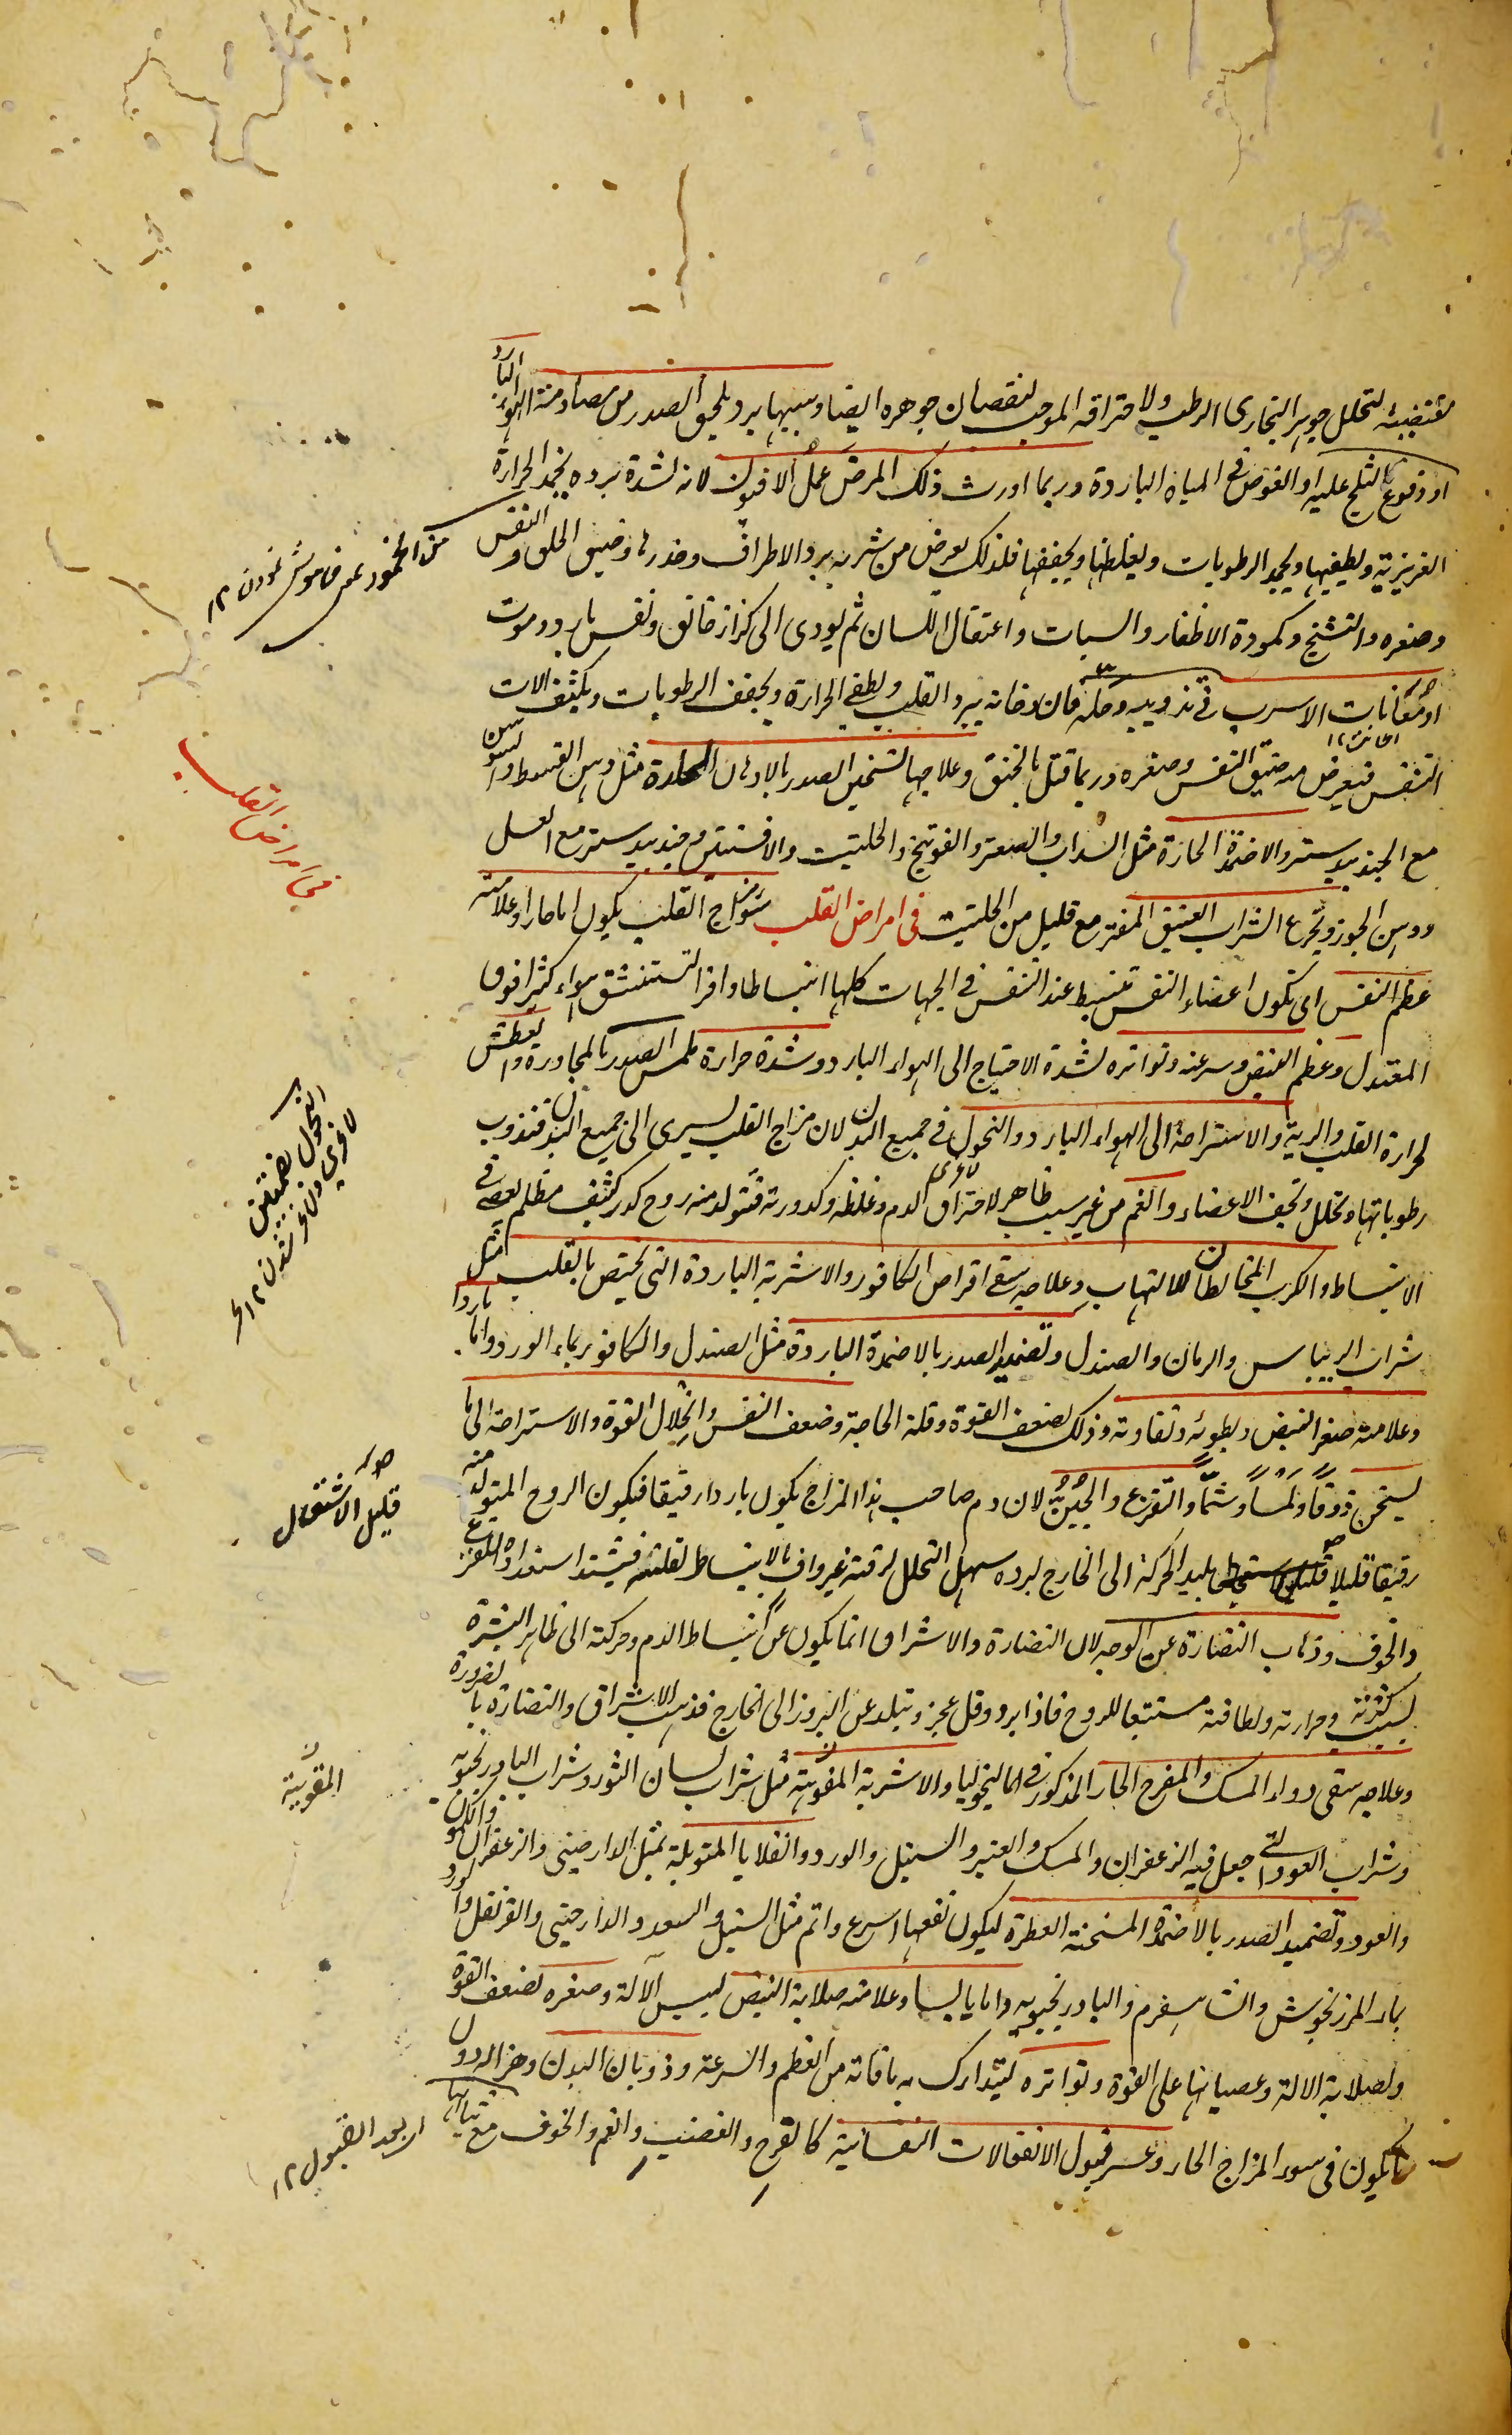 مقتضية لتحلل جوهر البخارى الرطب ولاحتراقه الموجب لنقصان جوهره ايضا وسببها برد يلحق الصدر من مصادمة الهواء البارد
او وقوع الثلج عليه او الغوص فى المياه الباردة وربما اورث ذلك المرض عمل الافيون لانه لشدة برده يخمد الحرارة
الغريزية ويطفيها ويجمد الرطوبات ويغلظها ويجففها فلذلك يعرض من شربه برد الاطراف وخدرها وضيق الحلق والنفس
وصغره والتشنج وكمودة الاظفار والسبات واعتقال اللسان ثم يودى الى كزاز خانق ونفس بارد وموت
او معانات الاسرب فى تذويبه وحله فان دخانه يبرد القلب ويطفى الحرارة ويجفف الرطوبات ويكثف الات
التنفس فيعرض منه ضيق النفس وصغره وربما قتل بالخنق وعلاجها تسخين الصدر بالادهان الحارة مثل دهن القسط والسوسن
مع الجندبيدستر والاضمدة الحارة مثل السداب والصعتر والفوتنج والحلتيت والافسنتين وجندبيدستر مع العسل
ودهن الجوز وتجرع الشراب العتيق المفتر مع قليل من الحلتيت فى امراض القلب سوء مزاج القلب يكون اما حارا وعلامته
عظم النفس اى تكون اعضاء النفس تنبسط عند النفس فى الجهات كلها انبساطا وافرا لتستنشق هواء كثيرا فوق
المعتدل وعظم النبض وسرعته وتواتره لشدة الاحتياج الى الهواء البارد وشدة حرارة ملمس الصدر بالمجاورة والعطش
لحرارة القلب والرية والاستراحة الى الهواء البارد والنحول فى جميع البدن لان مزاج القلب يسرى الى جميع البدن فتذوب
رطوباتها وتحلل وتجف الاعضاء والغم من غير سبب ظاهر لاحتراق الدم وغلظه وكدورته فتتولد منه روح كدر كثيف مظلم يعصى فى
الانبساط والكرب المخالطان للالتهاب وعلاجه سقى اقراص الكافور والاشربة الباردة التى تختص بالقلب مثل
شراب الريباس والرمان والصندل وتضميد الصدر بالاضمدة الباردة مثل الصندل والكافور بماء الورد واما باردا
وعلامته صغر النبض وبطوئه وتفاوته وذلك لضعف القوة وقلة الحاجة وضعف النفس وانحلال القوة والاستراحة الى ما
يسخن ذوقا ولمسا وشما والفزع والجبن لان دم صاحب هذا المزاج يكون باردا رقيقا فيكون الروح المتولد منه
رقيقا قليلا بليد الحركة الى الخارج لبرده سهل التحلل لرقته غير واف بالانبساط لقلته فيشتد استعداده للفزع
والخوف وذهاب النضارة عن الوجه لان النضارة والاشراق انما يكون عن انبساط الدم وحركته الى ظاهر البشرة
لسبب كثرته وحرارته ولطافته مستتبعا للروح فاذا برد وقل عجز وتبلد عن البروز الى الخارج فذهب الاشراق والنضارة بالضرورة
وعلاجه سقى دواء المسك والمفرح الحار المذكور فى الماليخوليا والاشربة المقوية مثل شراب لسان الثور وشراب البادرنجبويه
وشراب العود التى جعل فيه الزعفران والمسك والعنبر والسنبل والورد والقلايا المتوبلة بمثل الدارصينى والزعفران والكمون
والعود وتضميد الصدر بالاضمدة المسخنة العطرة ليكون نفعها اسرع واتم مثل السنبل والسعد والدارصينى والقرنفل والورد
بماء المرزنجوش والشاهسفرم والبادرنجبويه واما يابسا وعلامته صلابة النبض ليبس الآلة وصغره لضعف القوة
ولصلابة الالة وعصيانها على القوة وتواتره ليتدارك به مافاته من العظم والسرعة وذوبان البدن وهزاله دون
ما يكون فى سوء المزاج الحار وعسر قبول الانفعالات النفسانية كالفرح والغضب والغم والخوف مع ثباتها
فى امراض القلب
النحول بضمتين
لاغرى
قليل الاشتعال
المقوية
اى بعد القبول ١٢